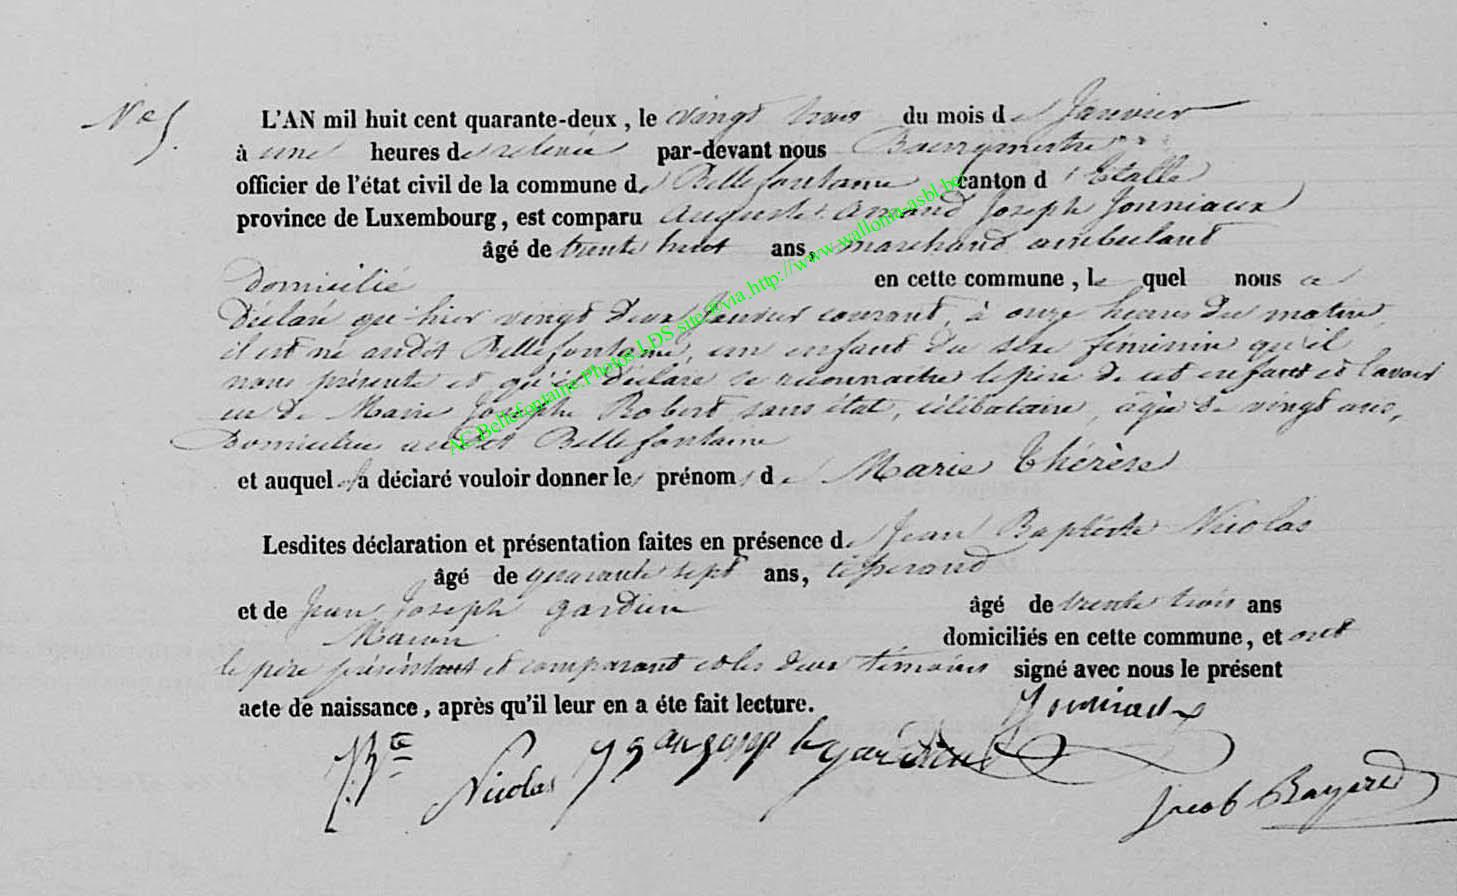 N° 5.
L'AN mil huit cent quarante-deux, le vingt trois du mois de Janvier
à une heures de relevée par-devant nous Bourgmestre
officier de l'état civil de la commune de Bellefontaine canton d'Etalle
province de Luxembourg, est comparu Auguste Amand Joseph Jonniaux
âgé de trente huit ans, marchand ambuland
Domicilié en cette commune, le quel nous a
Déclaré qu'hier vingt deux Janvier courant, à onze heures du matin
il est né audit Bellefontaine, un enfant du sexe féminin qu'il
nous présente et qu'il déclare se reconnaitre le père de cet enfant et l'avoir
eu de Marie Josephe Robert, sans état, célibataire, âgée de vingt ans,
Domiciliée audit Bellefontaine
et auquel il a déclaré vouloir donner les prénoms de Marie Thérèse
Lesdites déclaration et présentation faites en présence de Jean Baptiste Nicolas
âgé de quarante sept ans, tisserand
et de Jean Joseph Gardien âgé de trente trois ans
Macon domiciliés en cette commune, et ont
le père présentant et comparant et les deux témoins signé avec nous le présent
acte de naissance, après qu'il leur en a éte fait lecture.
Jonniaux
J. Bte Nicolas gardien
Jacob Bayard
AC.Bellefontaine.Photos.LDS site &via.http://www.wallonia-asbl.be/